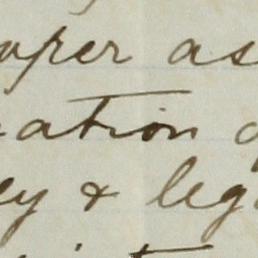 oper as
ation o
ey & leg